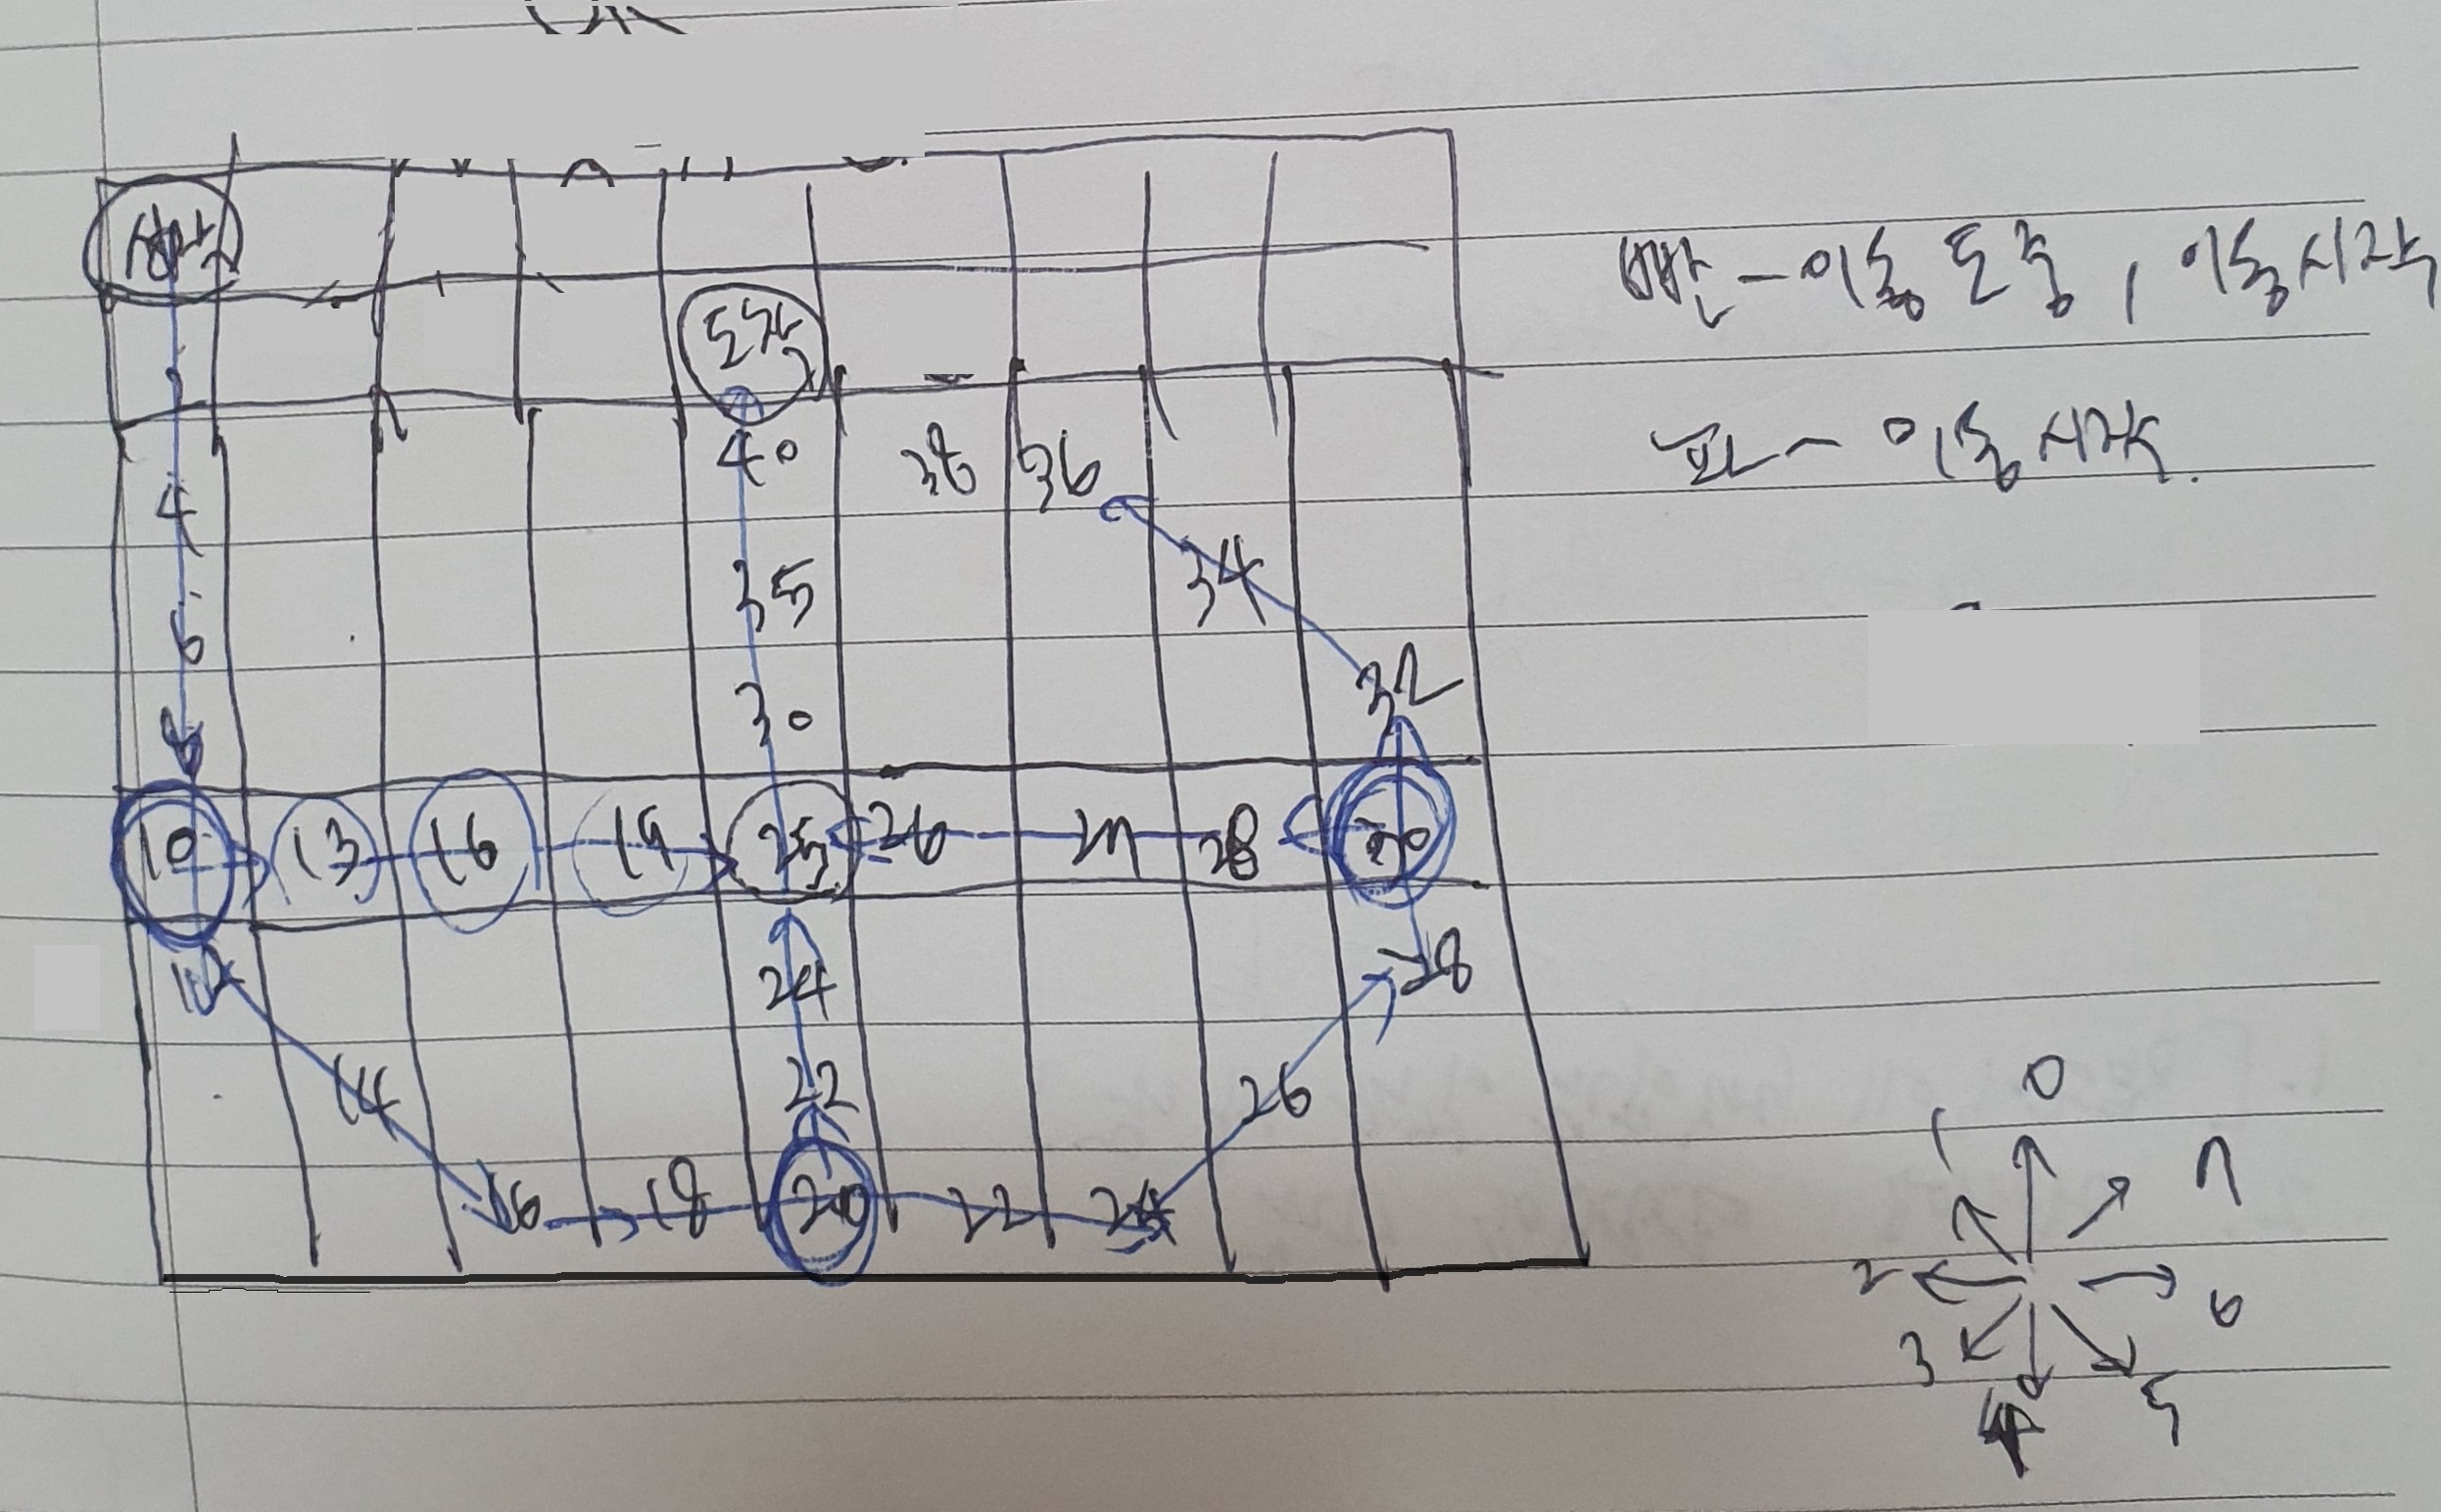 도착
빨 - 이동 도중, 이동시작
파 - 이동시작.
40 38 36
4
35 34
6
30 32
8
10 13 16 19 25 26 27 28 30
12 24 28
14 22 26
16 18 20 22 24
0
1 7
2 6
3 5
4